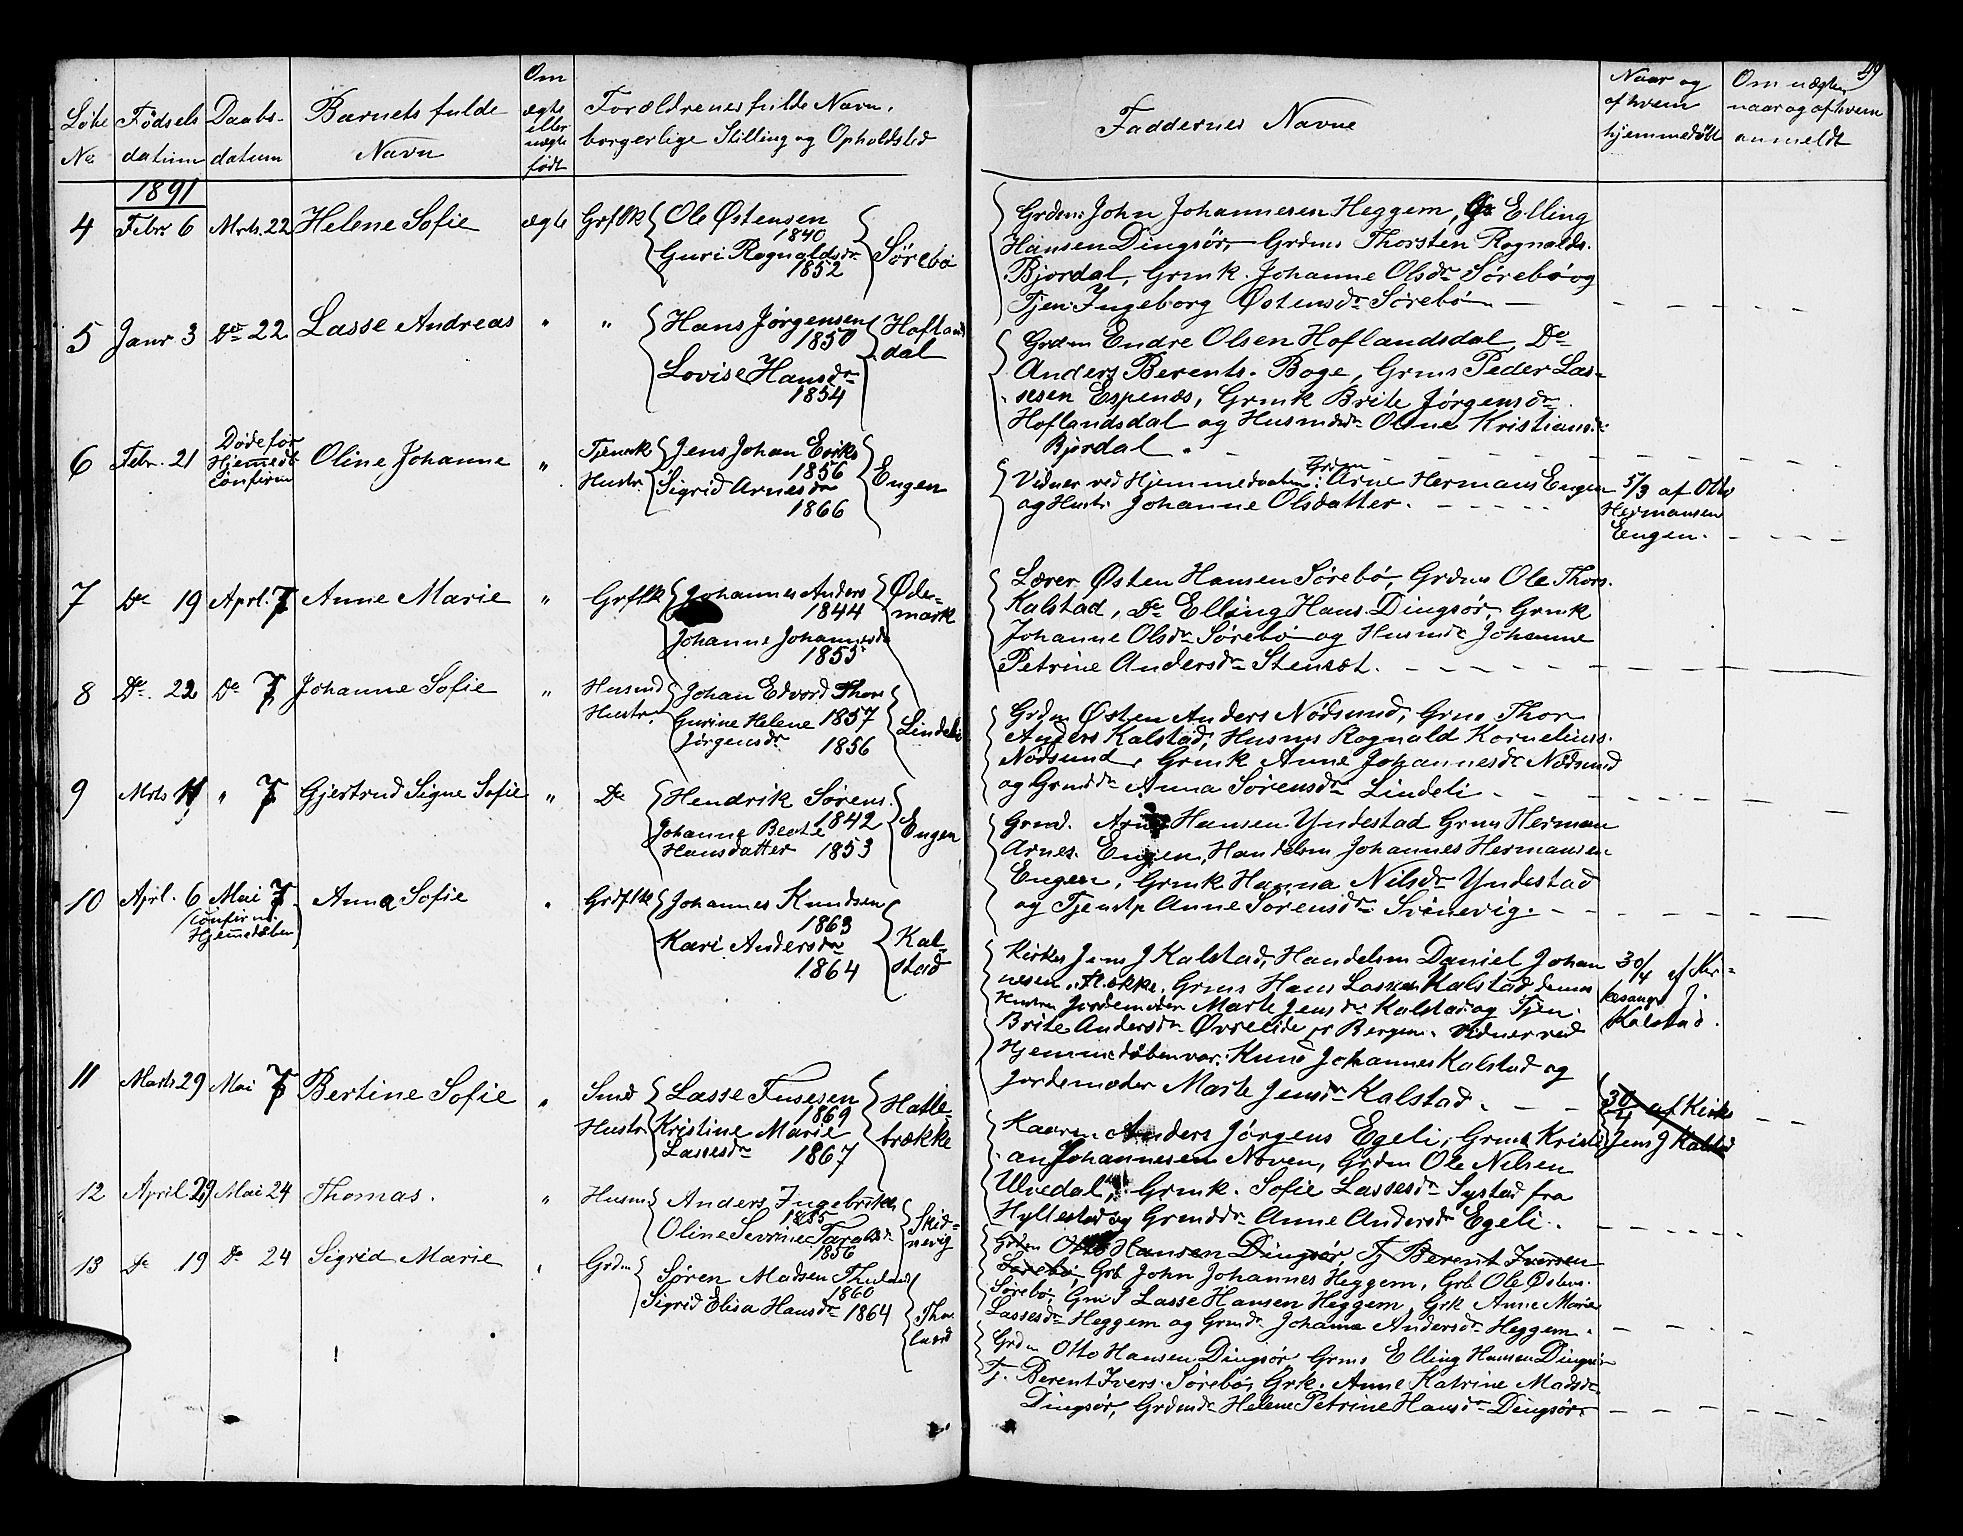 49
Løbe No. | Fødselsdatum | Daabsdatum | Barnets fulde Navn | Om ægte eller uægte født | Forældrenes fulde Navn, borgerlige Stilling og Opholdsted | Faddernes Navne | Naar og af hvem hjemmedøbt | Om uægte, naar og af hvem anmeldt
1891
4 Febr 6 Mrts. 22 Helene Sofie ægte Grflk Ole Østensen 1840
Guri Rognaldsdr 1852 Sørebø
Grdm: John Johannesen Heggem, Elling
Hansen Dingsør, Grdms Thorsten Rognalds.
Bjordal, Grmk. Johanne Olsdr Sørebø og
Tjen: Ingeborg Østensdr Sørebø
5 Janr 3 Do 22 Lasse Andreas " " Hans Jørgensen 1850
Lovise Hansdr 1854 Hoflandsdal
Grdm Endre Olsen Hoflandsdal, Do
Anders Berents. Boge, Grms Peder Las-
sesen Espenæs, Grmk Brite Jørgensdr
Hoflandsdal og Husmdsdr Oline Kristiansdr
Bjordal.
6 Febr. 21 Døde før Hjemmedb Confirm Oline Johanne " Tjenesk Jens Johan Eriks 1856
Hustr. Sigrid Arnesdr 1866 Engen
Vidner ved Hjemmedaaben: Grdm Arne Hermans Engen
og Hustr. Johanne Olsdatter.
5/3 af Otto
Hermansen
Engen.
7 Do 19 Aprl. 7 Anne Marie " Grflk Johannes Anders 1844
Johanne Johannesdr 1855 Ødemark
Lærer Østen Hansen Sørebø, Grdms Ole Thors.
Kalstad, Do Elling Hans. Dingsør, Grmk
Johanne Olsdr Sørebø og Husmdr Johanne
Petrine Andersdr Stensæt.
8 Do 22 Do 7 Johanne Sofie " Husmd Johan Edvard Thors
Hustr. Gurine Helene 1857
Jørgensdr 1856 Lindeli
Grdm Østen Anders Nødsund, Grms Thor
Anders Kalstad, Husms Rognald Kornelius.
Nødsund, Grmk Anne Johannesdr Nødsund
og Grmddr Anna Sørensdr Lindeli
9 Mrts 11 " 7 Gjertrud Signe Sofie " Do Hendrik Sørens. 1842
Johanne Beate
Hansdatter 1853 Engen
Grmd. Arne Hansen Yndestad Grms Herman
Arnes. Engen, Handelsm Johannes Hermansen
Engen, Grmk Hanna Nilsdr Yndestad
og Tjenstp Anne Sørensdr Svinevig.
10 Aprl. 6 Mai 7 Anna Sofie " Grdflk Johannes Knudsen 1863
(Confirm. Hjemmedaaben) Kari Andersdr 1864 Kalstad
Kirkes Jens J Kalstad, Handelsm Daniel Johan
nesen Flekke, Grms Hans Lassesen Kalstad dennes
Hustru Jordemoder Marte Jensdr Kalstad og Tjen.
Brite Andersdr Øvrelide pr Bergen. Vidner ved
Hjemmedøben var: Knud Johannes Kalstad og
Jordemoder Marte Jensdr Kalstad.
30/4 af Kir-
kesanger J.
Kalstad.
11 Marts 29 Mai 7 Bertine Sofie " Smed Lasse Tusesen 1869
Hustr. Kristine Marie
Lassesdr 1867 Hattebrække
30/4 af Kirks
Jens J Kalstad
Kaarm. Anders Jørgens Egeli, Grms Kristi
an Johannesen Noven, Grdm Ole Nilsen
Ulvedal, Grmk. Sofie Lassesdr Systad fra
Hyllestad og Grmddr Anne Andersdr Egeli.
12 April 29 Mai 24 Thomas. " Husm Anders Ingebrikts 1855
Oline Sevrine Taralds 1856 Skidnevig
Grdm Otto Hansen Dingsør, Tj Berent Iversen
Sørebø, Grb John Johannes Heggem, Grb Ole Østens.
Sørebø, Grms Lasse Hansen Heggem, Grk Anne Marie
Lassesdr Heggem og Grmdr Johanne Andersdr Heggem.
13 Do 19 Do 24 Sigrid Marie " Grdm Søren Madsen Thuland 1860
Sigrid Elisa Hansdr 1864
Grdm Otto Hansen Dingsør, Grms Elling Hansen Dingsør
Tj. Berent Ivers. Sørebø, Grk. Anne Katrine Madsdr
Dingsør, Grdmdr Helene Petrine Hansdr Dingsør.